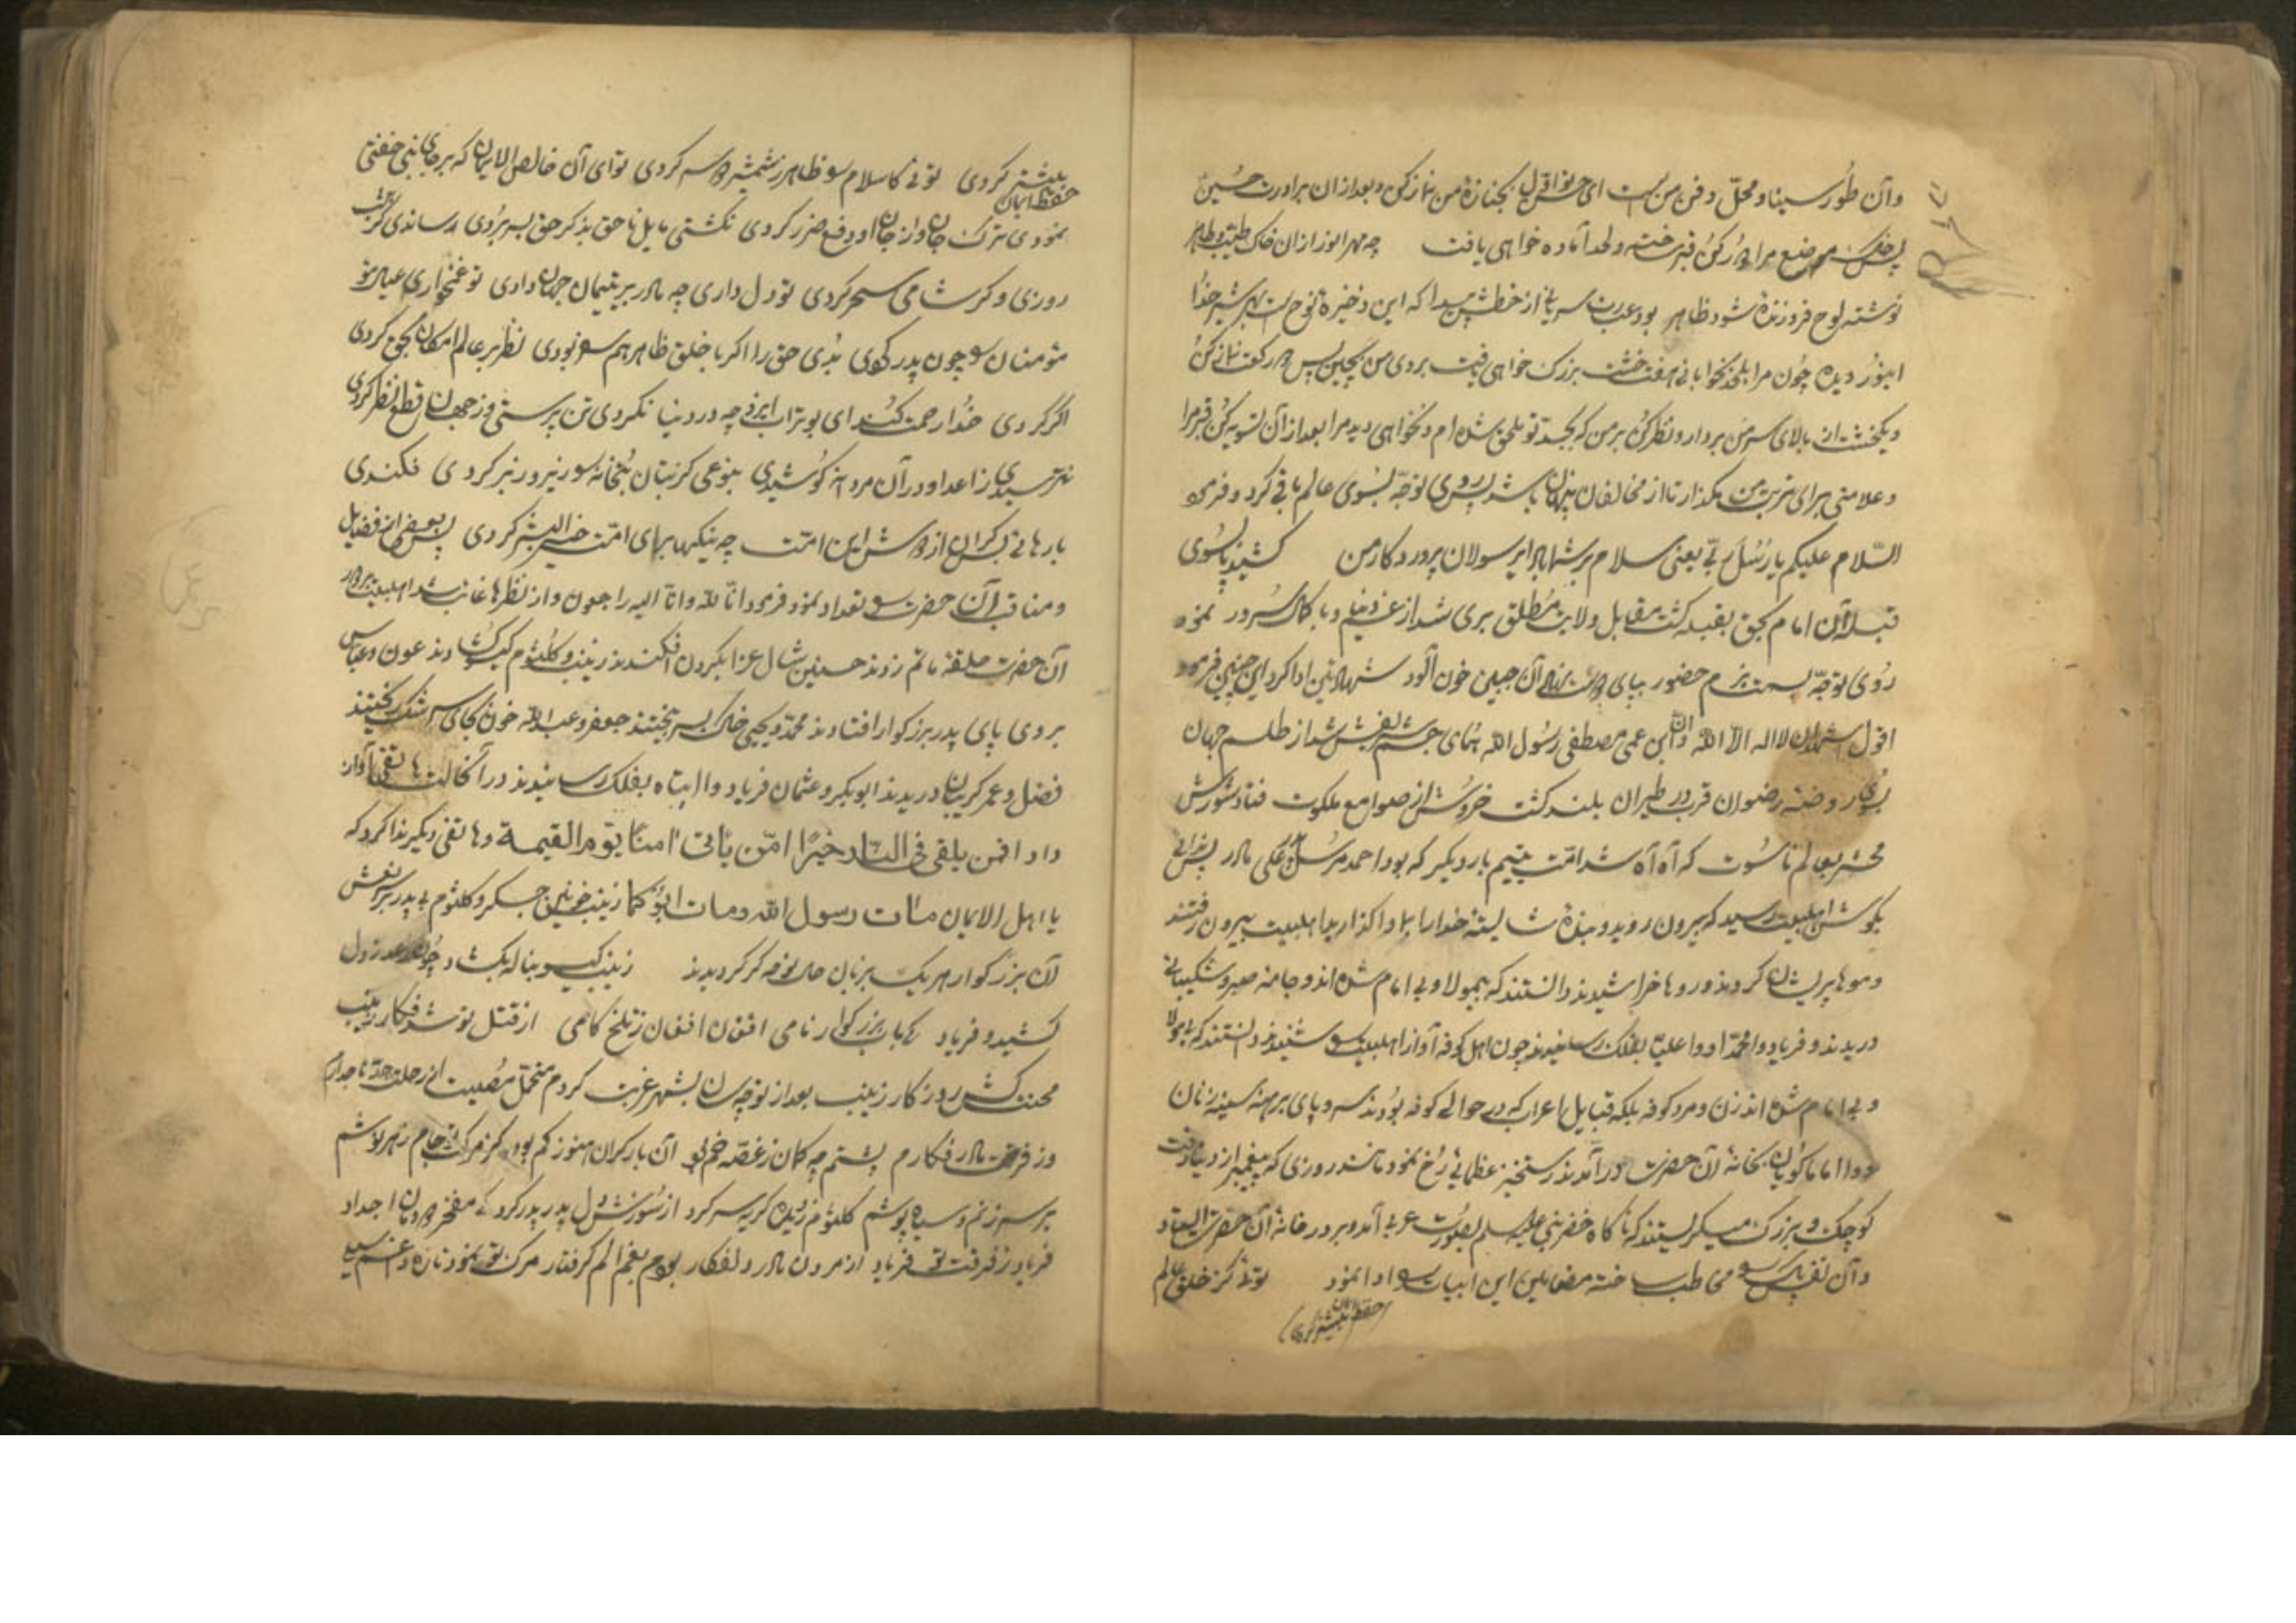 وآن طور سینا و محل دفن من است ای بجنازهٔ من نماز کن و بعد از آن برادرت حسین
پس موضع مرا کن قبر ساخته و لحد آماده خواهی یافت چه مهر انور از ان خاک طیب و طاهر
نوشته لوح فروزنده شود ظاهر بود عبارت سریانی از خطش پیدا که این ذخیره نوح است بهر شیر خدا
اینور دیده چون مرا بلحد بخوابانی هفت خشت بزرگ خواهی یافت بر روی من بچین پس
ویکخشت از بالای سر من بردار و نظر کن بر من که بجد تو ملحق شده ام و نخواهی دید مرا بعد از آن تسویه کن قبر مرا
و علامتی برای تربت من مگذار تا از مخالفان پنهان باشد پس روی توجه بسوی عالم باقی کرد و فرمود
السلام علیکم یا رسل ربی یعنی سلام بر شما باد ای رسولان پروردگار من کشید پا بسوی
قبله آن امام بحق بقبله گشت مقابل ولایت مطلق بری شد از غم دنیا و با کمال سرور نمود
روی توجه بسمت بزم حضور بپای آن جبین خون آلود شهادتین ادا کرد این چنین فرمود
اقول اشهد ان لا اله الا الله و ان ابن عمی مصطفی رسول الله همای جسم شریفش شد از طلسم جهان
بسوی روضه رضوان قرب در طیران بلند گشت خروش از صوامع ملکوت فتاد شورش
محشر بعالم ناسوت که آه آه شد امت یتیم بار دیگر که بود احمد مرسل علی پس ندائی
بگوش اهلبیت رسید که بیرون روید و بندهٔ شایسته خدا را بما واگذارید اهلبیت بیرون رفتند
و موها پریشان کردند و روها خراشیدند دانستند که بیمولا و بی امام شده اند و جامه صبر و شکیبائی
دریدند و فریاد وا محمدا و وا علیا بفلک رسانیدند چون اهل کوفه آواز اهلبیت را شنیدند دانستند که بی مولا
و بی امام شده اند زن و مرد کوفه بلکه قبایل اعراب که در حوالی کوفه بودند سر و پای برهنه سینه زنان
و وا اماما گویان بخانهٔ آن حضرت درآمدند رستخیز عظمائی رخ نمود مانند روزی که پیغمبر از دنیا رفت
کوچک و بزرگ میگریستند که ناگاه خضر نبی علیه السلام بصورت عربی آمد و بر در خانهٔ آن حضرت ایستاد
و آن نفس پاک را مخاطب ساخته مضامین این ابیات را ادا نمود توئی کز خلق عالم
حفظ ایمان بیشتر کردی
بیشتر کردی توئی کاسلام را ظاهر ز شمشیر دو سر کردی تو ای آن خالص الایمان که بر جای نبی خفتی
حفظ ایمان
نمودی ترک جان و از جان او دفع ضرر کردی نگشتی مایل ناحق بذکر حق بسر بردی
روزی و گر شامی سحر کردی تو دل داری چه مادر بر یتیمان جهان دادی تو غمخواری عیال
مؤمنان را چون پدر کردی بدی حق را اگر با خلق ظاهر هم سو نبودی نظر بر عالم امکان بحق کردی
اگر کردی خدا رحمت کند ای بوتراب ایزد چه در دنیا نکردی تن پرستی و ز جهان قطع نظر کردی
نترسیدی ز اعدا و در آن مردانه کوشیدی بنوعی کز بتان بتخانه را زیر و زبر کردی فکندی
بارهای بیکران از دوش این امت چه نیکیها بجای امت خیر البشر کردی پس بعضی از فضایل
و مناقب آن حضرت را تعداد نمود فرمود انا لله و انا الیه راجعون و از نظرها غایب شد اهلبیت بر دور
آن حضرت حلقه ماتم زدند حسنین شال عزا بگردن افکندند زینب و کلثوم گیسو گشادند عون و عباس
بروی پای پدر بزرگوار افتادند محمد و یحیی خاک بسر بیختند جعفر و عبد الله خون بجای سرشک ریختند
فضل و عمر گریبان دریدند ابوبکر و عثمان فریاد وا ابتاه بفلک رسانیدند در آنحالت هاتفی آواز
داد افمن یلقی فی النار خیر امن یأتی امنا یوم القیمة و هاتفی دیگر ندا کرد که
یا اهل الایمان مات رسول الله و مات ابوکما زینب خونین جگر و کلثوم بی پدر بر سر نعش
آن بزرگوار هر یک بزبان حال نوحه گر گردیدند زینب گیسو بناله بگشاد چون رعد ز دل
کشید و فریاد کی باب بزرگوار نامی افغان افغان ز تلخ کامی از قتل تو شد فکار زینب
محنت کش روزگار زینب بعد از تو چه سان بشهر غربت کردم متحمل مصیبت از رحلت جد تاجدارم
وز فرقت مادر فکارم پشتم چه کمان ز غصه خم بود آن بار گران هنوز کم بود کز مرگ تو جام زهر نوشم
بر سر زنم و سیاه پوشم کلثوم ز دیده گریه سر کرد از سوزش دل پدر پدر کرد کی مفخر دودمان اجداد
فریاد ز فرقت تو فریاد از مردن مادر دلفکار بودم بغم الم گرفتار مرگ تو نمود تازه